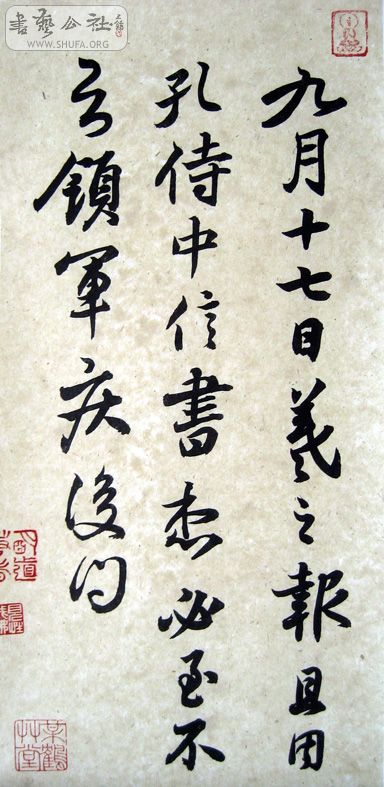 書藝公社
WWW.SHUFA.ORG
九月十七日羲之報且因
孔侍中信書想必至不
知領軍疾後問
某鶴
艸堂